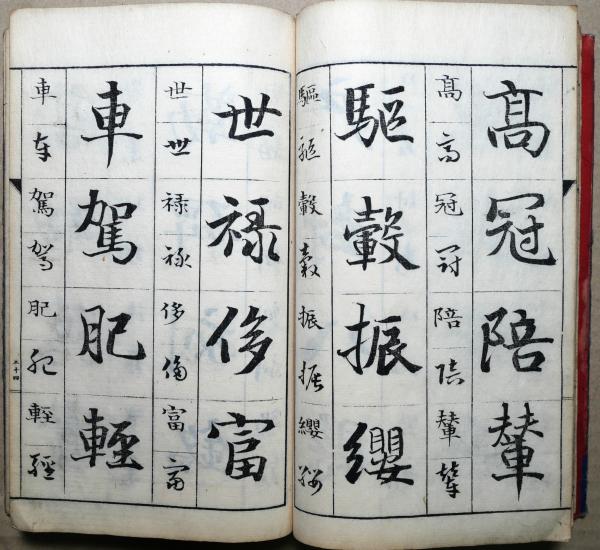 髙冠陪輦
髙高冠冠陪陪輦輦
驅轂振纓
驅驅轂轂振振纓纓
世禄侈富
世世禄禄侈侈富富
車駕肥輕
車车駕駕肥肥輕輕